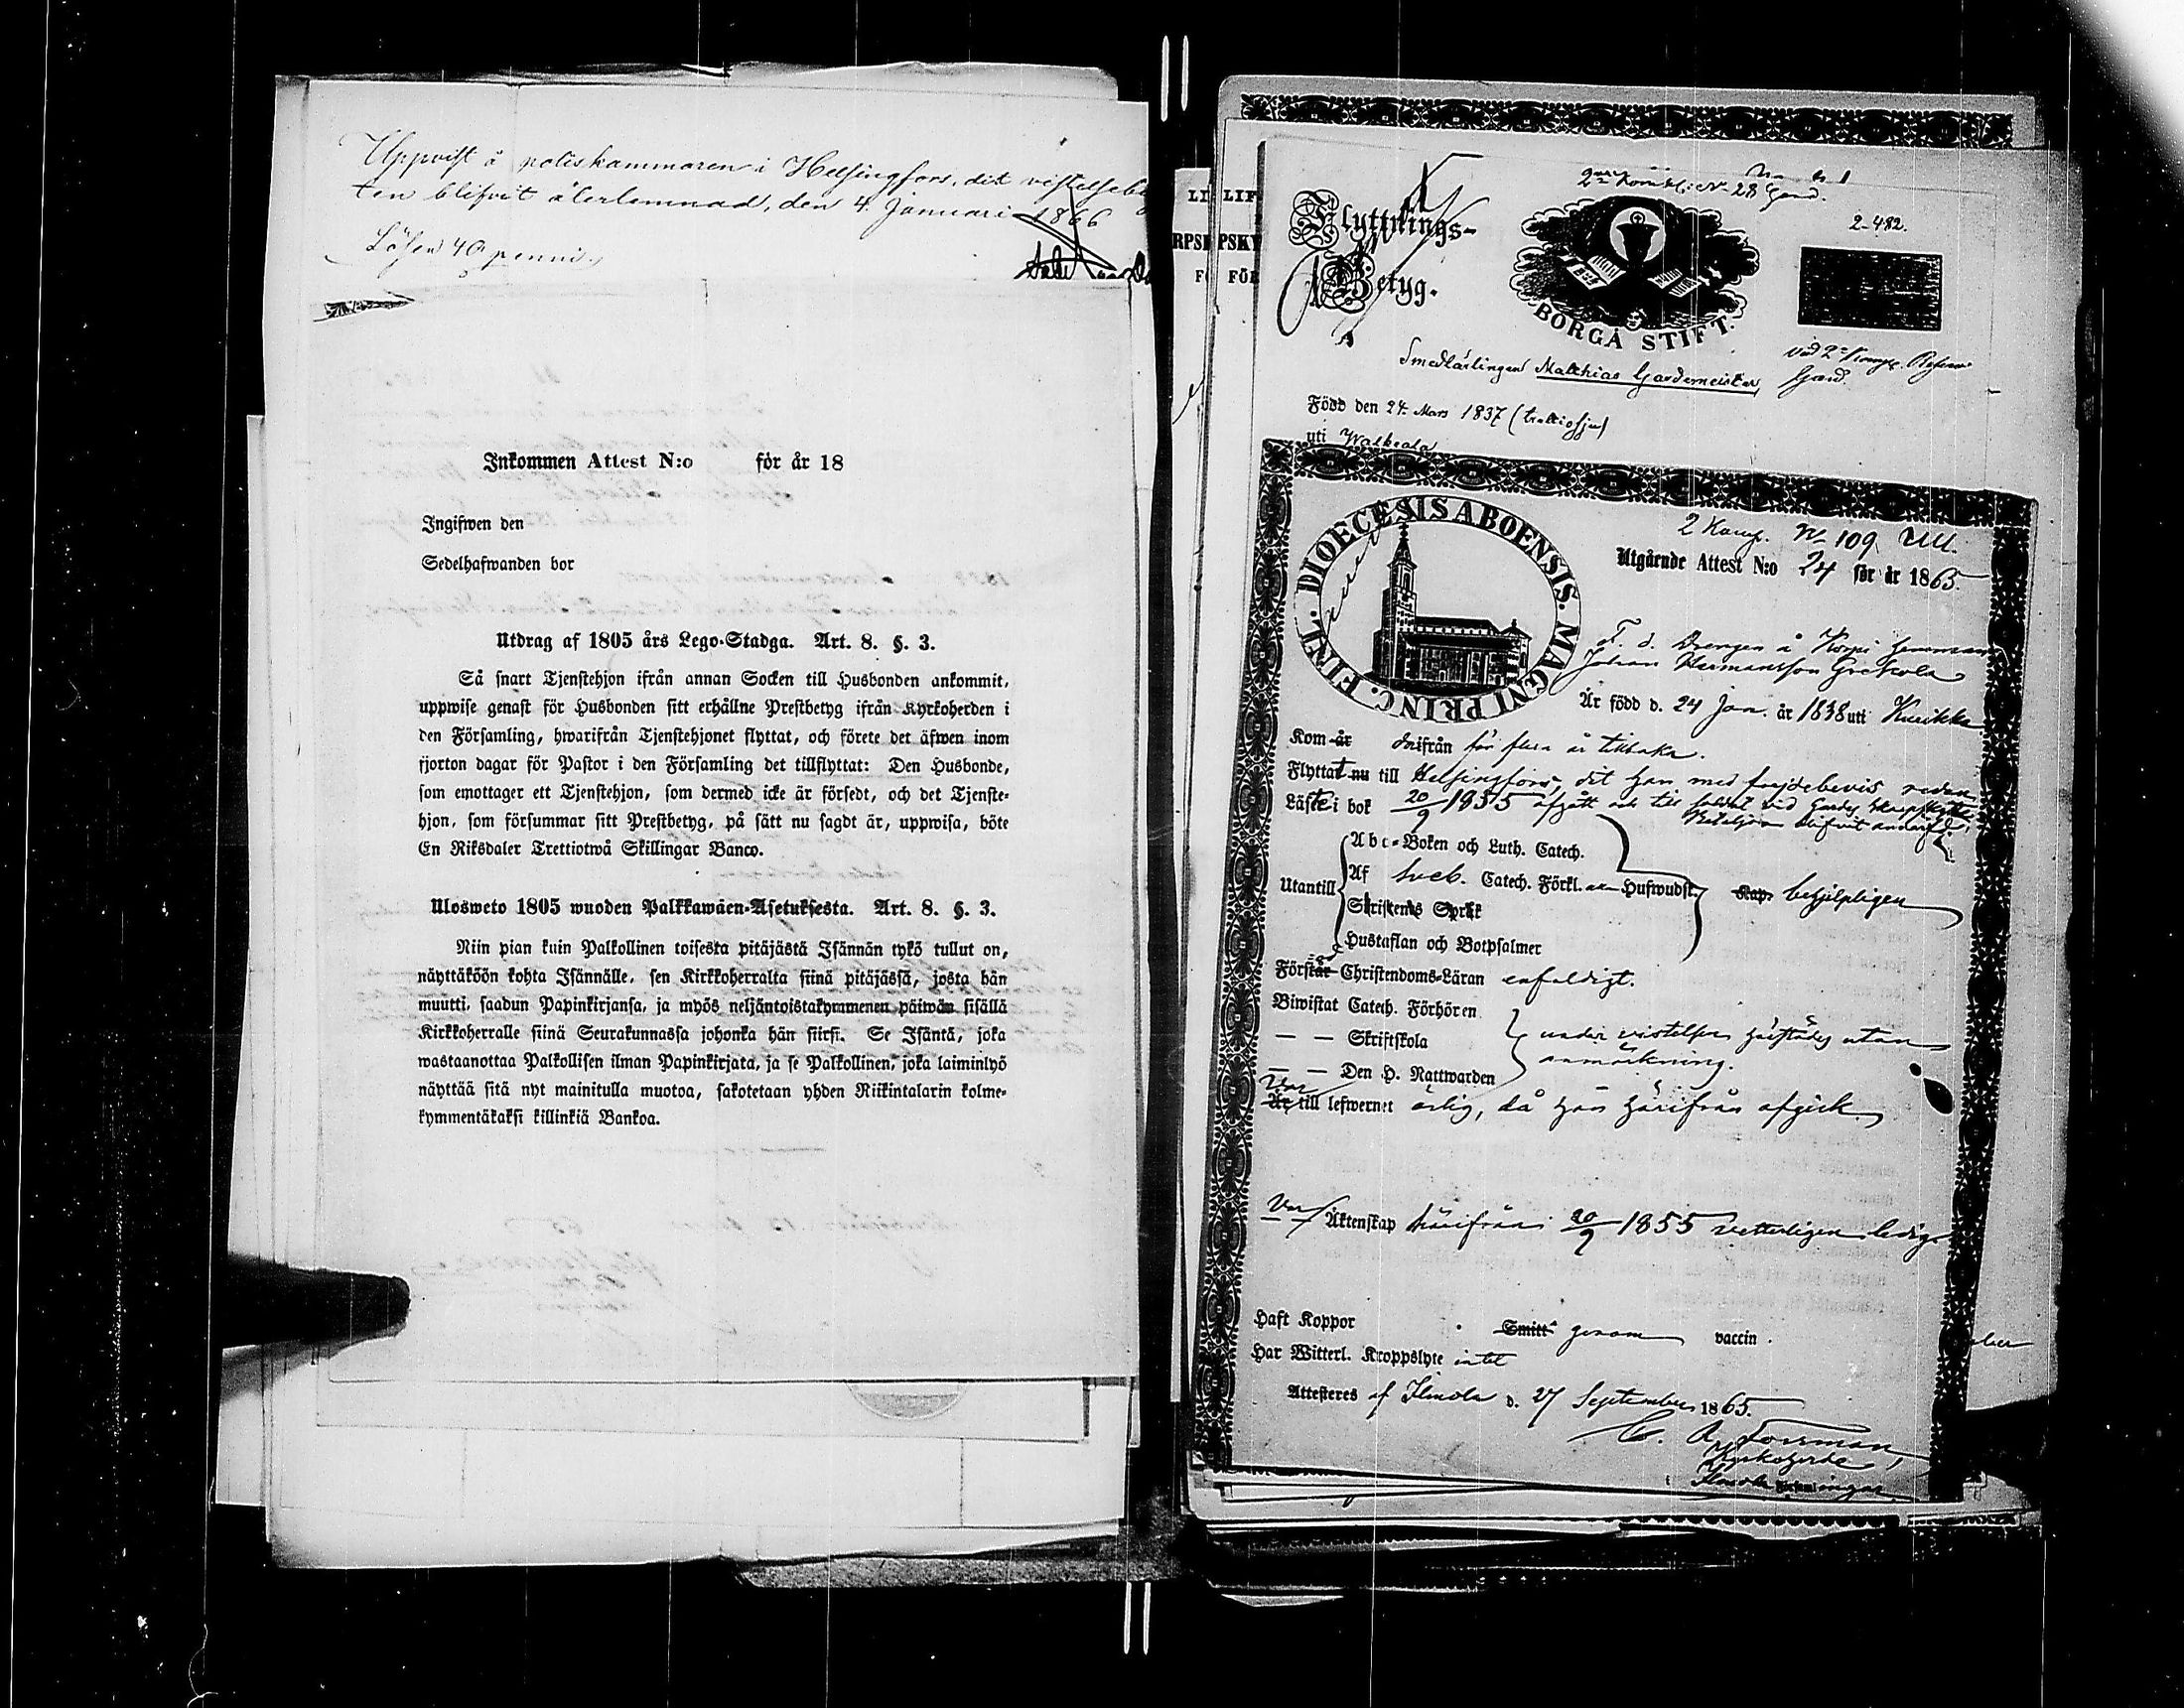 Uppvist å poliskammaren i Helsingfors, dit vistelse
ten blifvit återlemnad, den 4 Januari 1866
Lösen 40 penni.
Inkommen Attest N:o för år 18
Ingifwen den
Sedelhafwanden bor
Utdrag af 1805 års Lego-Stadga. Art. 8. §. 3.
Så snart Tjenstehjon ifrån annan Socken till Husbonden ankommit,
uppwise genast för Husbonden sitt erhållne Prestbetyg ifrån Kyrkoherden i
den Församling, hwarifrån Tjenstehjonet flyttat, och förete det äfwen inom
fjorton dagar för Pastor i den Församling det tillflyttat: Den Husbonde,
som emottager ett Tjenstehjon, som dermed icke är försedt, och det Tjenste-
hjon, som försummar sitt Prestbetyg, på sätt nu sagdt är, uppwisa, böte
En Riksdaler Trettiotwå Skillingar Banco.
Ulosweto 1805 wuoden Palkkawäen-Asetuksesta. Art. 8. §. 3.
Niin pian kuin Palkollinen toisesta pitäjästä Isännän tykö tullut on,
näyttäköön kohta Isännälle, sen Kirkkoherralta siinä pitäjässä, josta hän
muutti, saadun Papinkirjansa, ja myös neljäntoistakymmenen päiwän sisällä
Kirkkoherralle siinä Seurakunnassa johonka hän siirsi. Se Isäntä, joka
wastaanottaa Palkollisen ilman Papinkirjata, ja se Palkollinen, joka laiminlyö
näyttää sitä nyt mainitulla muotoa, sakotetaan yhden Riikintalarin kolme-
kymmentäkaksi killinkiä Bankoa.
LI LIF
RPSK PSKY
F FÖR
Flyttnings-
Betyg.
N 28 Gard.
2-482.
BORGÅ STIFT.
Smedlärlingen Matthias Gardemeister
vid 2 Komp. Reserv
Gard.
Född den 24 Mars 1837 (trettiosju)
uti Walkeala
FINL. DIOECESIS ABOENSIS. MAGNI PRINC.
2 Komp. N 109
Utgående Attest N:o 24 för år 1865.
F. d. Drengen å Korpi hemman
Johan Hermansson Grekola
Är född d. 24 Jan. år 1838 uti Kurikka
Kom år ifrån för flera år tillbaka.
Flyttat nu till Helsingfors, dit han med frejdebevis redan
Läste i bok 20/9 1855 afgått och till soldat vid Gardes Skarpskytte
Bataljon blifvit antagen
Utantill
Abc-Boken och Luth. Catech.
Af Sveb. Catech. Förkl. Hufwudst. Kap. behjelpligen
Skriftenes Språk
Hustaflan och Botpsalmer
Förstår Christendoms-Läran enfaldigt.
Biwistat Catech. Förhören
— — Skriftskola under vistelsen härstädes utan
anmärkning.
— — Den H. Nattwarden
Var
Är till lefwernet ärlig, då han härifrån afgick
Var Äktenskap härifrån 20/9 1855 vetterligen ledig
Haft Koppor Smitt genom vaccin.
Har Witterl. Kroppslyte intet
Attesteres af Ilmola d. 27 September 1865.
C. R. Forsman,
Kyrkoherde
Ilmola Församlingar